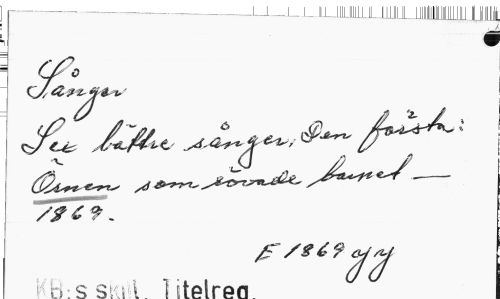 Sånger
See bättre sånger; Den första:
Örnen som rövade barnet —
1869.
E 1869 yy
KB:s skill. Titelreg.